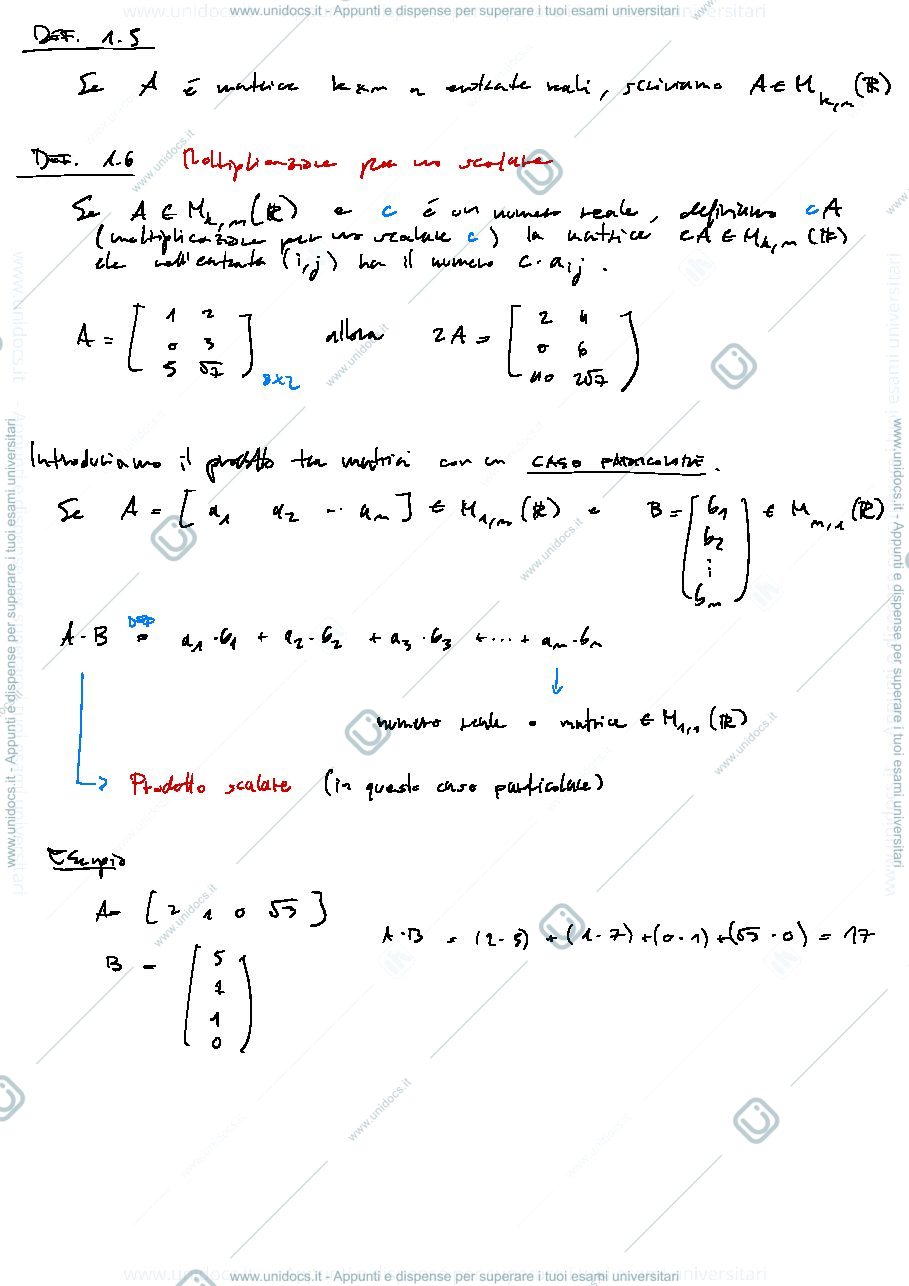 www.unidocs.it - Appunti e dispense per superare i tuoi esami universitari
DEF. 1.5
Se A è matrice k×m a entrate reali, scriviamo A ∈ M_{k,m}(ℝ)
DEF. 1.6 Moltiplicazione per uno scalare
Se A ∈ M_{k,m}(ℝ) e c è un numero reale, definiamo cA
(moltiplicazione per uno scalare c) la matrice cA ∈ M_{k,m}(ℝ)
che nell'entrata (i,j) ha il numero c·a_{ij}.
A = [1 2; 0 3; 5 √7] 3×2 allora 2A = [2 4; 0 6; 10 2√7]
Introduciamo il prodotto tra matrici con un CASO PARTICOLARE.
Se A = [a₁ a₂ ... aₘ] ∈ M_{1,m}(ℝ) e B = [b₁ b₂ ⋮ bₘ] ∈ M_{m,1}(ℝ)
A·B =(DEF) a₁·b₁ + a₂·b₂ + a₃·b₃ + ... + aₘ·bₘ
numero reale o matrice ∈ M_{1,1}(ℝ)
Prodotto scalare (in questo caso particolare)
Esempio
A = [2 1 0 √3]
B = [5 7 1 0]
A·B = (2·5) + (1·7) + (0·1) + (√3·0) = 17
www.unidocs.it - Appunti e dispense per superare i tuoi esami universitari